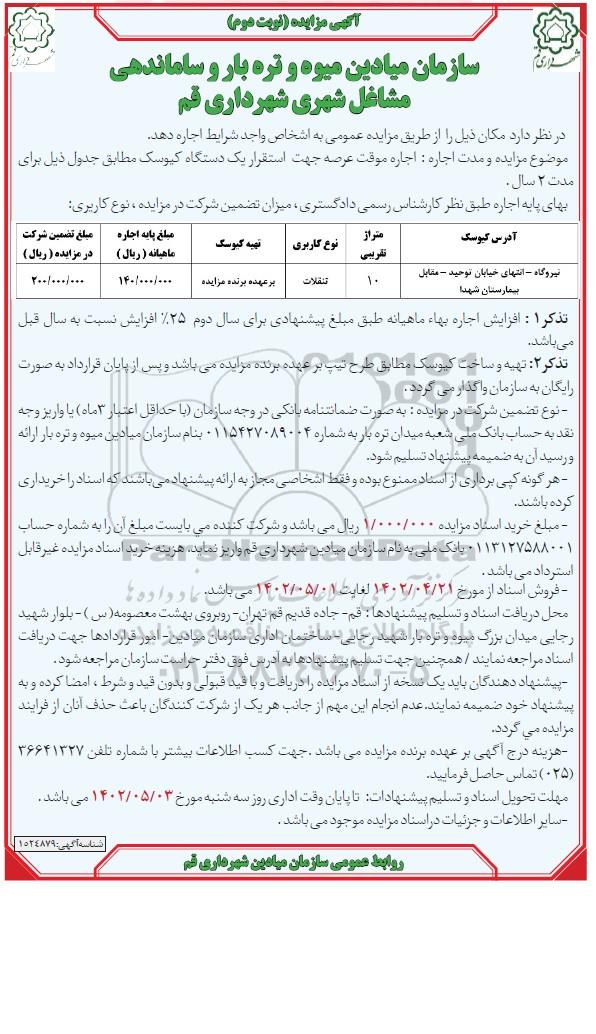 آگهی مزایده (نوبت دوم)
سازمان میادین میوه و تره بار و ساماندهی
مشاغل شهری شهرداری قم
در نظر دارد مکان ذیل را از طریق مزایده عمومی به اشخاص واجد شرایط اجاره دهد.
موضوع مزایده و مدت اجاره : اجاره موقت عرصه جهت استقرار یک دستگاه کیوسک مطابق جدول ذیل برای
مدت ۲ سال .
بهای پایه اجاره طبق نظر کارشناس رسمی دادگستری ، میزان تضمین شرکت در مزایده ، نوع کاربری:
آدرس کیوسک | متراژ تقریبی | نوع کاربری | تهیه کیوسک | مبلغ پایه اجاره ماهیانه ( ریال ) | مبلغ تضمین شرکت در مزایده ( ریال )
نیروگاه – انتهای خیابان توحید – مقابل بیمارستان شهدا | ۱۰ | تنقلات | بر عهده برنده مزایده | ۱۴۰/۰۰۰/۰۰۰ | ۲۰۰/۰۰۰/۰۰۰
تذکر۱ : افزایش اجاره بهاء ماهیانه طبق مبلغ پیشنهادی برای سال دوم ۲۵٪ افزایش نسبت به سال قبل
می‌باشد.
تذکر۲: تهیه و ساخت کیوسک مطابق طرح تیپ بر عهده برنده مزایده می باشد و پس از پایان قرارداد به صورت
رایگان به سازمان واگذار می گردد .
- نوع تضمین شرکت در مزایده : به صورت ضمانتنامه بانکی در وجه سازمان (با حداقل اعتبار ۳ماه) یا واریز وجه
نقد به حساب بانک ملی شعبه میدان تره بار به شماره ۰۱۱۵۴۲۷۰۸۹۰۰۴ بنام سازمان میادین میوه و تره بار ارائه
و رسید آن به ضمیمه پیشنهاد تسلیم شود.
- هر گونه کپی برداری از اسناد ممنوع بوده و فقط اشخاصی مجاز به ارائه پیشنهاد می‌باشند که اسناد را خریداری
کرده باشند.
- مبلغ خرید اسناد مزایده ۱/۰۰۰/۰۰۰ ریال می باشد و شرکت کننده می بایست مبلغ آن را به شماره حساب
۰۱۱۳۱۲۷۵۸۸۰۰۱ بانک ملی به نام سازمان میادین شهرداری قم واریز نماید. هزینه خرید اسناد مزایده غیرقابل
استرداد می باشد .
- فروش اسناد از مورخ ۱۴۰۲/۰۴/۲۱ لغایت ۱۴۰۲/۰۵/۰۱ می باشد.
محل دریافت اسناد و تسلیم پیشنهادها : قم- جاده قدیم قم تهران- روبروی بهشت معصومه( س ) - بلوار شهید
رجایی میدان بزرگ میوه و تره بار شهید رجایی- ساختمان اداری سازمان میادین- امور قراردادها جهت دریافت
اسناد مراجعه نمایند / همچنین جهت تسلیم پیشنهادها به آدرس فوق دفتر حراست سازمان مراجعه شود .
-پیشنهاد دهندگان باید یک نسخه از اسناد مزایده را دریافت و با قید قبولی و بدون قید و شرط ، امضا کرده و به
پیشنهاد خود ضمیمه نمایند.عدم انجام این مهم از جانب هر یک از شرکت کنندگان باعث حذف آنان از فرایند
مزایده می گردد.
-هزینه درج آگهی بر عهده برنده مزایده می باشد .جهت کسب اطلاعات بیشتر با شماره تلفن ۳۶۶۴۱۳۲۷
(۰۲۵) تماس حاصل فرمایید.
مهلت تحویل اسناد و تسلیم پیشنهادات: تا پایان وقت اداری روز سه شنبه مورخ ۱۴۰۲/۰۵/۰۳ می باشد .
-سایر اطلاعات و جزئیات در اسناد مزایده موجود می باشد .
شناسه آگهی: ۱۵۲۴۸۷۹
روابط عمومی سازمان میادین شهرداری قم
ParsNamadData
۰۲۱-۸۸۳۴۹۶۷۰-۵